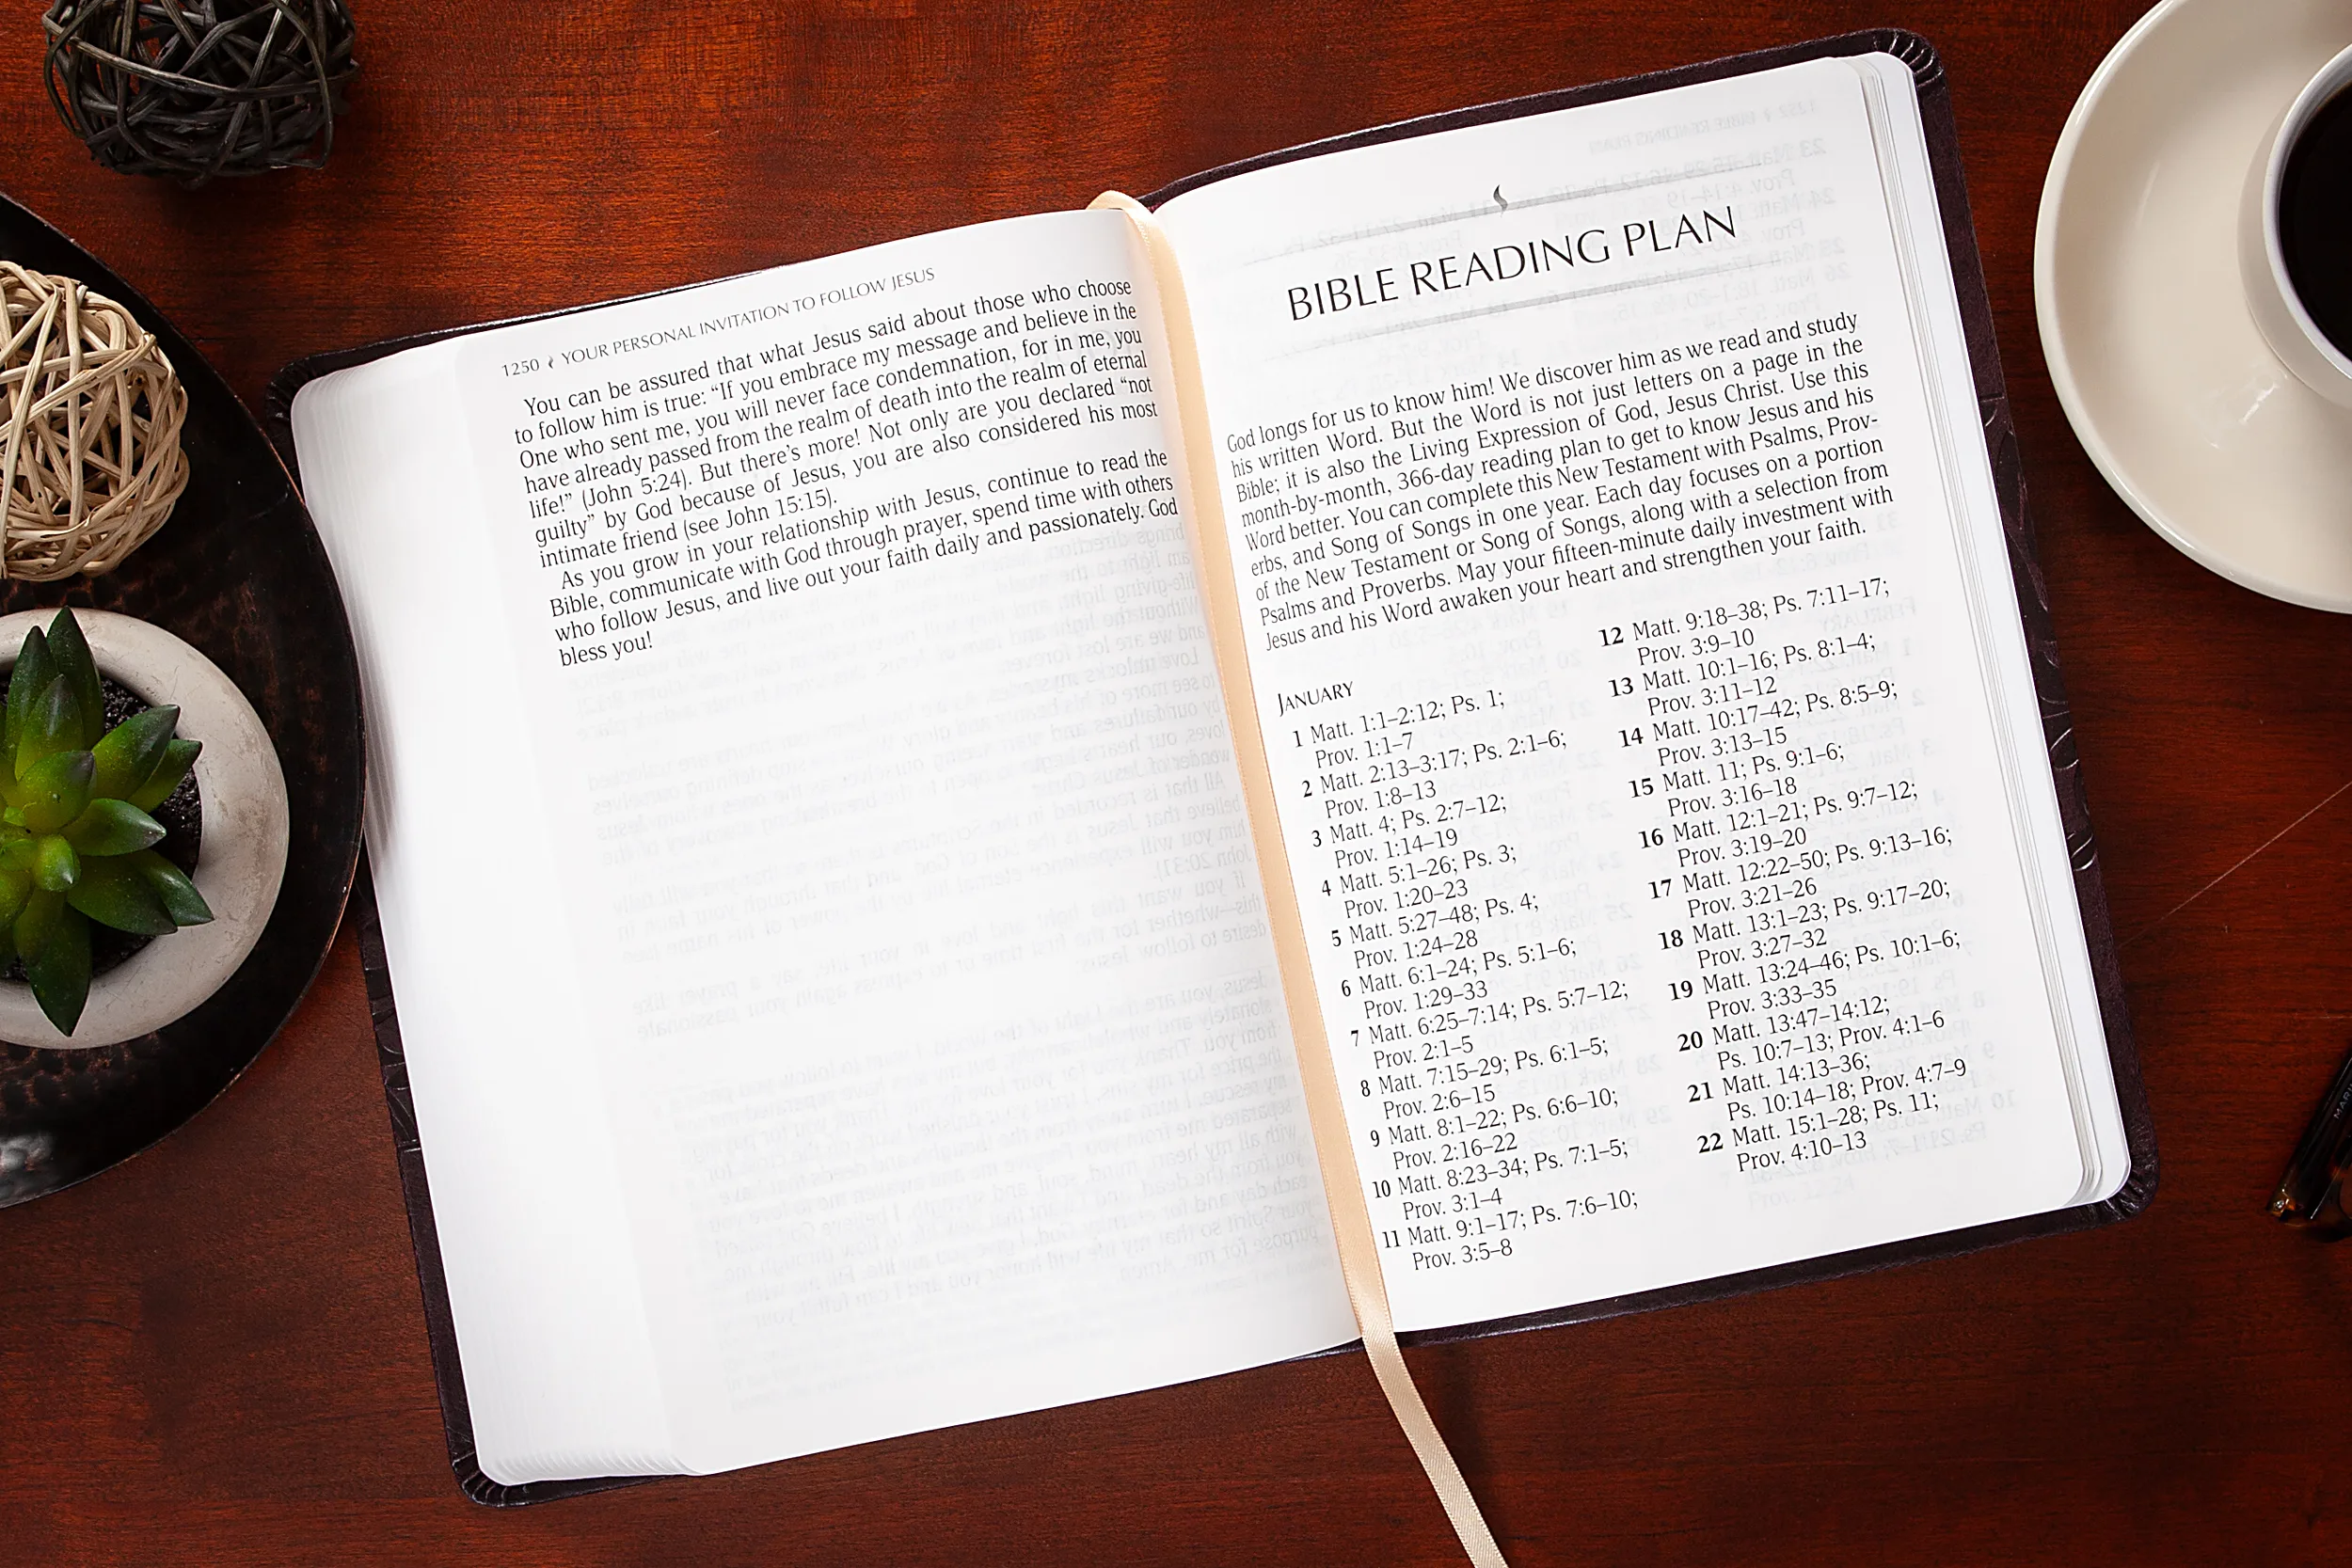 1250 YOUR PERSONAL INVITATION TO FOLLOW JESUS
You can be assured that what Jesus said about those who choose
to follow him is true: “If you embrace my message and believe in the
One who sent me, you will never face condemnation, for in me, you
have already passed from the realm of death into the realm of eternal
life!” (John 5:24). But there’s more! Not only are you declared “not
guilty” by God because of Jesus, you are also considered his most
intimate friend (see John 15:15).
As you grow in your relationship with Jesus, continue to read the
Bible, communicate with God through prayer, spend time with others
who follow Jesus, and live out your faith daily and passionately. God
bless you!
BIBLE READING PLAN
God longs for us to know him! We discover him as we read and study
his written Word. But the Word is not just letters on a page in the
Bible; it is also the Living Expression of God, Jesus Christ. Use this
month-by-month, 366-day reading plan to get to know Jesus and his
Word better. You can complete this New Testament with Psalms, Prov-
erbs, and Song of Songs in one year. Each day focuses on a portion
of the New Testament or Song of Songs, along with a selection from
Psalms and Proverbs. May your fifteen-minute daily investment with
Jesus and his Word awaken your heart and strengthen your faith.
JANUARY
1 Matt. 1:1–2:12; Ps. 1;
Prov. 1:1–7
2 Matt. 2:13–3:17; Ps. 2:1–6;
Prov. 1:8–13
3 Matt. 4; Ps. 2:7–12;
Prov. 1:14–19
4 Matt. 5:1–26; Ps. 3;
Prov. 1:20–23
5 Matt. 5:27–48; Ps. 4;
Prov. 1:24–28
6 Matt. 6:1–24; Ps. 5:1–6;
Prov. 1:29–33
7 Matt. 6:25–7:14; Ps. 5:7–12;
Prov. 2:1–5
8 Matt. 7:15–29; Ps. 6:1–5;
Prov. 2:6–15
9 Matt. 8:1–22; Ps. 6:6–10;
Prov. 2:16–22
10 Matt. 8:23–34; Ps. 7:1–5;
Prov. 3:1–4
11 Matt. 9:1–17; Ps. 7:6–10;
Prov. 3:5–8
12 Matt. 9:18–38; Ps. 7:11–17;
Prov. 3:9–10
13 Matt. 10:1–16; Ps. 8:1–4;
Prov. 3:11–12
14 Matt. 10:17–42; Ps. 8:5–9;
Prov. 3:13–15
15 Matt. 11; Ps. 9:1–6;
Prov. 3:16–18
16 Matt. 12:1–21; Ps. 9:7–12;
Prov. 3:19–20
17 Matt. 12:22–50; Ps. 9:13–16;
Prov. 3:21–26
18 Matt. 13:1–23; Ps. 9:17–20;
Prov. 3:27–32
19 Matt. 13:24–46; Ps. 10:1–6;
Prov. 3:33–35
20 Matt. 13:47–14:12;
Ps. 10:7–13; Prov. 4:1–6
21 Matt. 14:13–36;
Ps. 10:14–18; Prov. 4:7–9
22 Matt. 15:1–28; Ps. 11;
Prov. 4:10–13